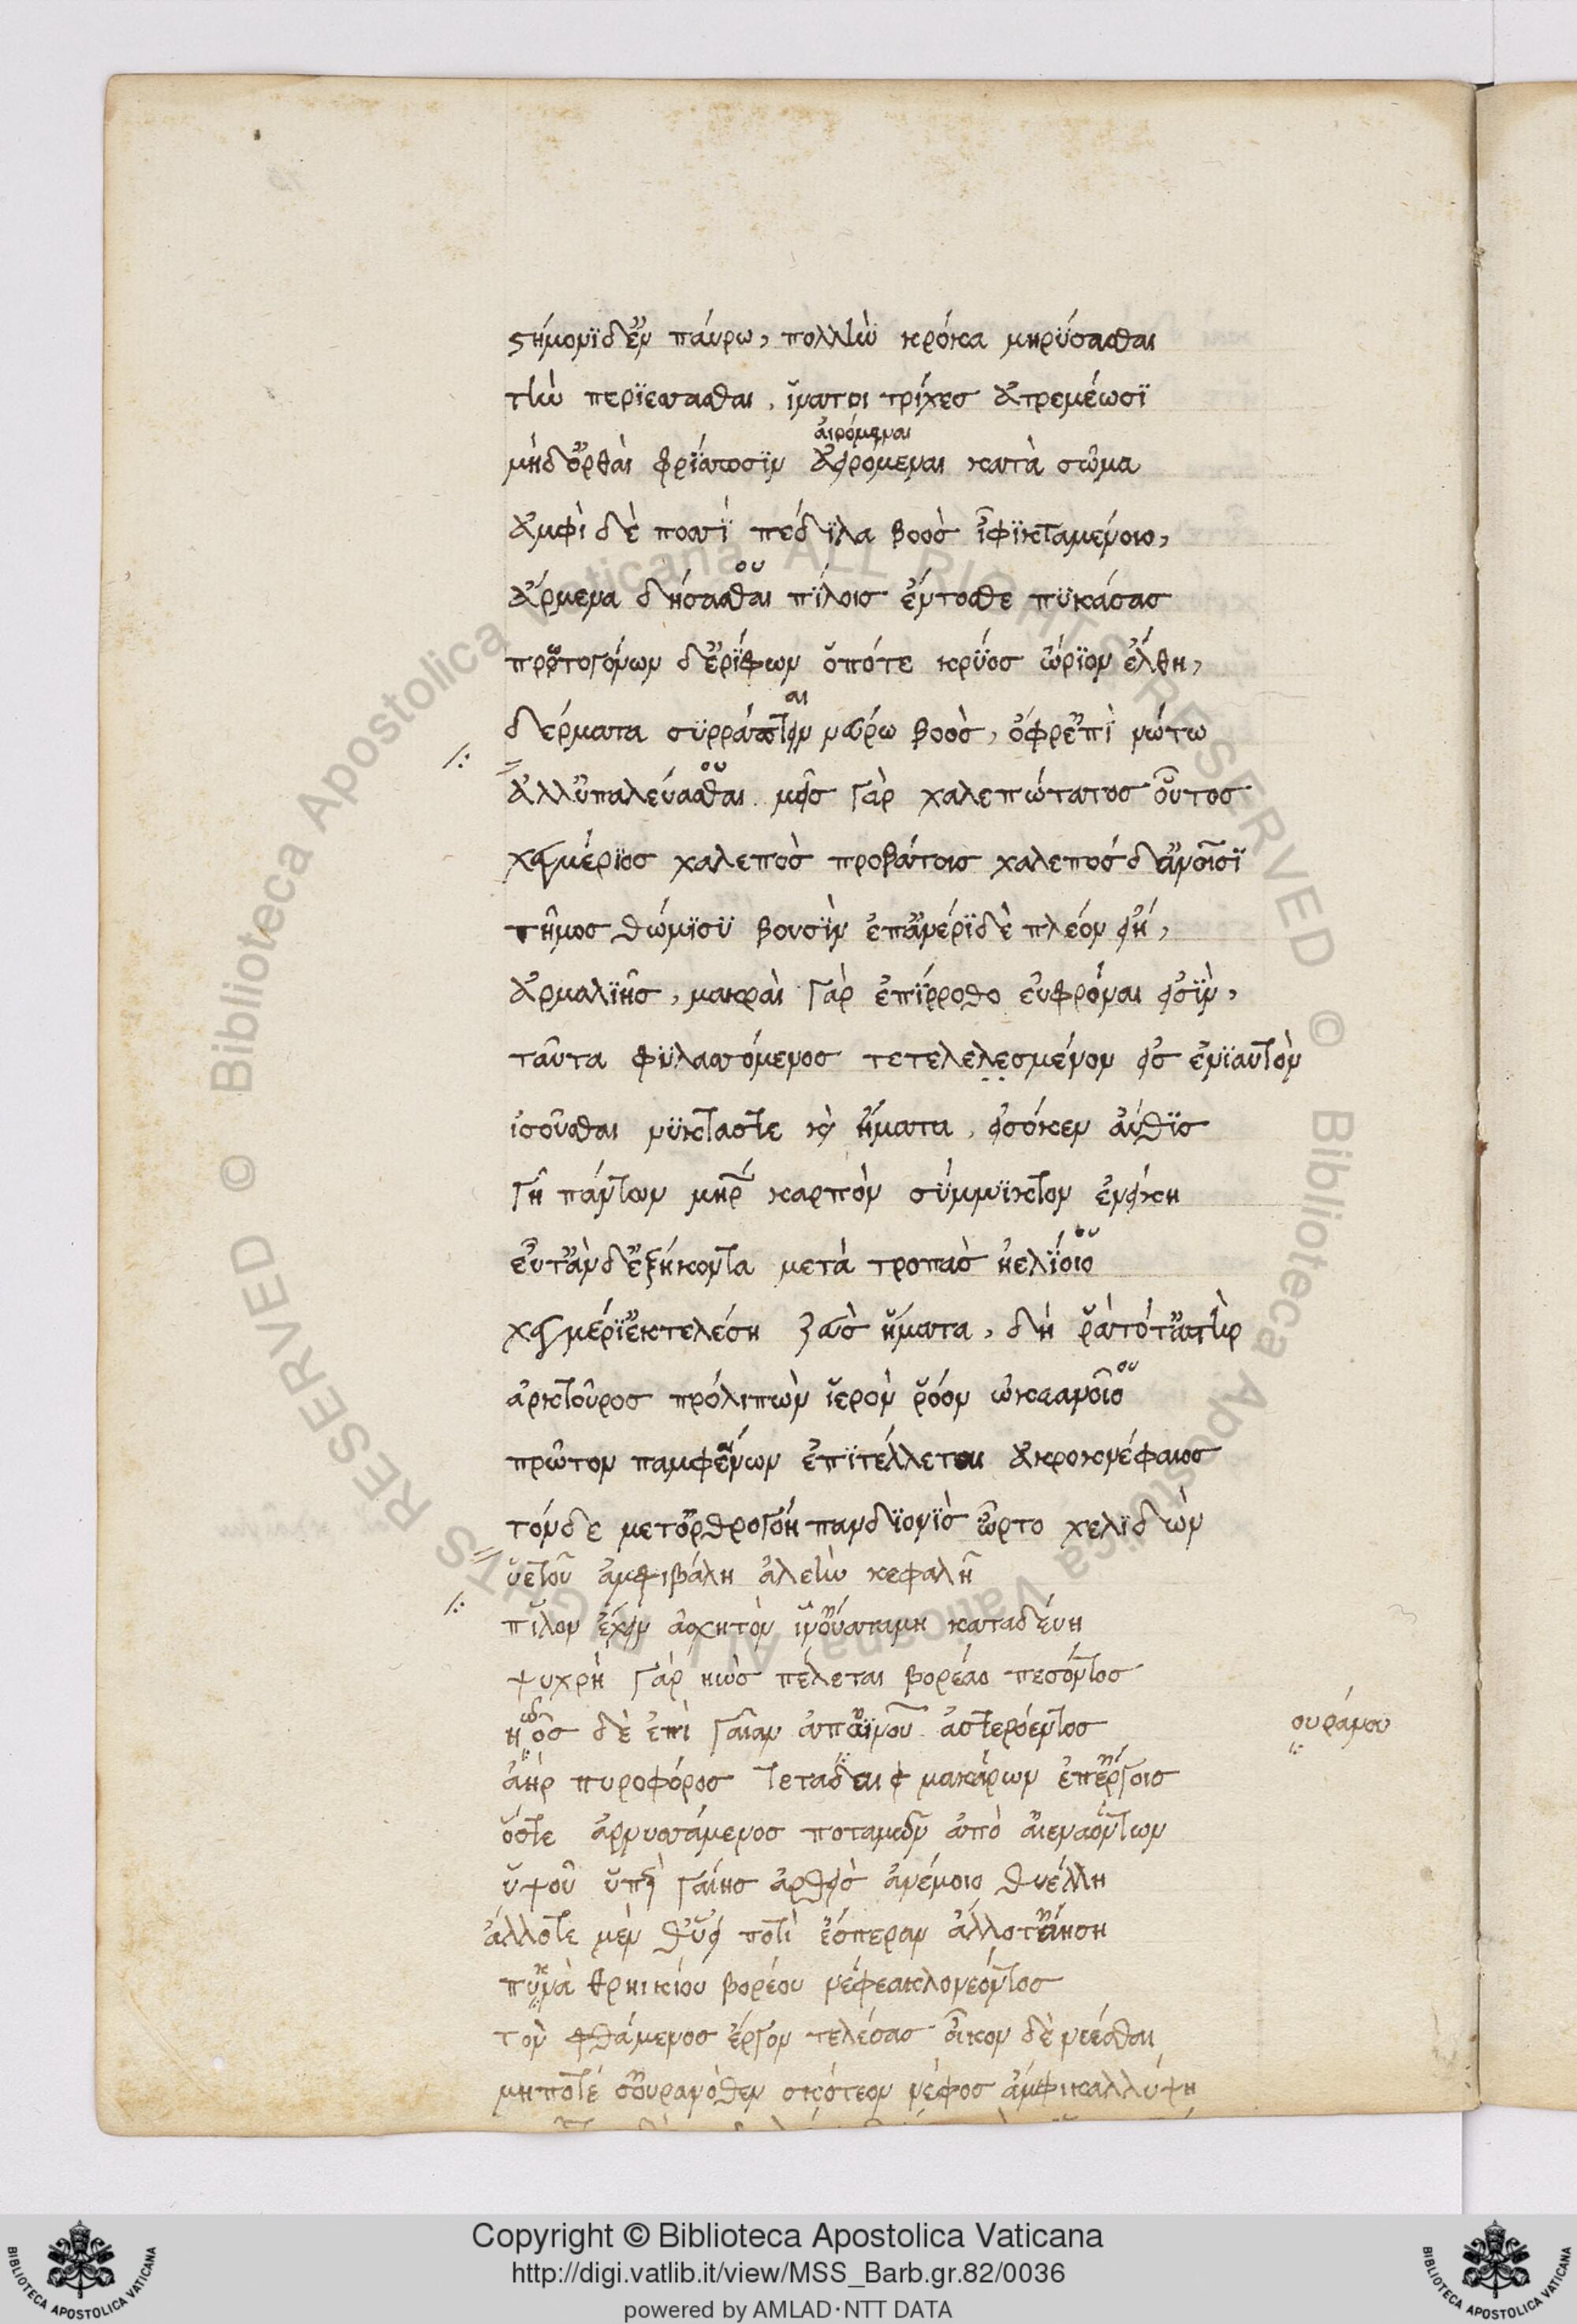 στήμονϊ δ' ἐν παύρω, πολλὴν κρόκα μηρύσασθαι
τὴν περϊέσσασθαι, ἵνα τοι τρίχες ἀτρεμέωσϊ
ἀειρόμεναι
μὴδ' ὀρθαὶ φρίσσωσϊν ἀειρόμεναι κατὰ σῶμα
ἀμφὶ δὲ ποσσὶ πέδϊλα βοὸς ἶφϊ κταμένοιο,
ου
ἄρμενα δήσασθαι πίλοις ἔντοσθε πϋκάσας
πρωτογόνων δ' ἐρίφων ὁπότε κρύος ὥριον ἔλθη,
αι
δέρματα συρράπτειν νεύρω βοὸς, ὄφρ' ἐπὶ νώτω
ου
ἀλλ' ὑπαλεύασθαι. μεὶς γὰρ χαλεπώτατος οὗτος
χειμέριος χαλεπὸς προβάτοις χαλεπός δ' ἀν οῖσϊ
τῆμος θώμϊσϋ βουσὶν ἐπ' ἀνέρϊ δὲ πλέον εἴη,
ἁρμαλϊῆς, μακραὶ γὰρ ἐπίρροθο εὐφρόναι εἰσὶν,
ταῦτα φϋλασσόμενος τετελελεσμένον εἰς ἐνϊαυτὸν
ἰσοῦσθαι νύκτας τε καὶ ἤματα, εἰσόκεν αὖθϊς
γῆ πάντων μήτηρ καρπὸν σύμμϊκτον ἐνείκη
ου
εὖτ' ἂν δ' ἑξήκοντα μετὰ τροπὰς ἠελΐοιο
χειμέρϊ' ἐκτελέση ζεὺς ἤματα, δή ῥα τότ' ἀστὴρ
ου
ἀρκτοῦρος πρόλιπὼν ἱερὸν ῥόον ὠκεανοῖο
πρῶτον παμφαίνων ἐπϊτέλλεται ἀκροκνέφαιος
τόνδε μετ' ὀρθρογόη πανδϊονὶς ὦρτο χελϊδὼν
ὑετοῦ ἀμφιβάλη ἀλεὴν κεφαλῆ
πῖλον ἔχειν ἀσκητὸν ἵν' οὔατα μη καταδεύη
ψυχρὴ γάρ ηὼς πέλεται βορέαο πεσόντος
ηῶος δὲ ἐπὶ γαῖαν ἀπ' αϊνοῦ ἀστερόεντος
ουράνου
ἀὴρ πυροφόρος τεταδαι ε μακάρων ἐπ' ἔργοις
ὅστε ἀρρυσσάμενος ποταμῶν ἀπὸ αἰεναόντων
ὑψοῦ ὑπὲρ γαίης ἀρθεὶς ἀνέμοιο θυέλλη
ἄλλοτε μὲν θ' ὕει ποτὶ ἕσπεραν ἄλλοτ' ἄησι
πυκνὰ θρηικίου βορέου νέφεα κλονεόντος
τὸν φθάμενος ἔργον τελέσας οἶκον δὲ νέεσθαι
μηποτέ σ' οὐρανόθεν σκότεον νέφος ἀμφικαλλύψη
Copyright © Biblioteca Apostolica Vaticana
http://digi.vatlib.it/view/MSS_Barb.gr.82/0036
powered by AMLAD·NTT DATA
BIBLIOTECA APOSTOLICA VATICANA
BIBLIOTECA APOSTOLICA VATICANA
© Biblioteca Apostolica Vaticana ALL RIGHTS RESERVED © Biblioteca Apostolica Vaticana ALL RIGHTS RESERVED